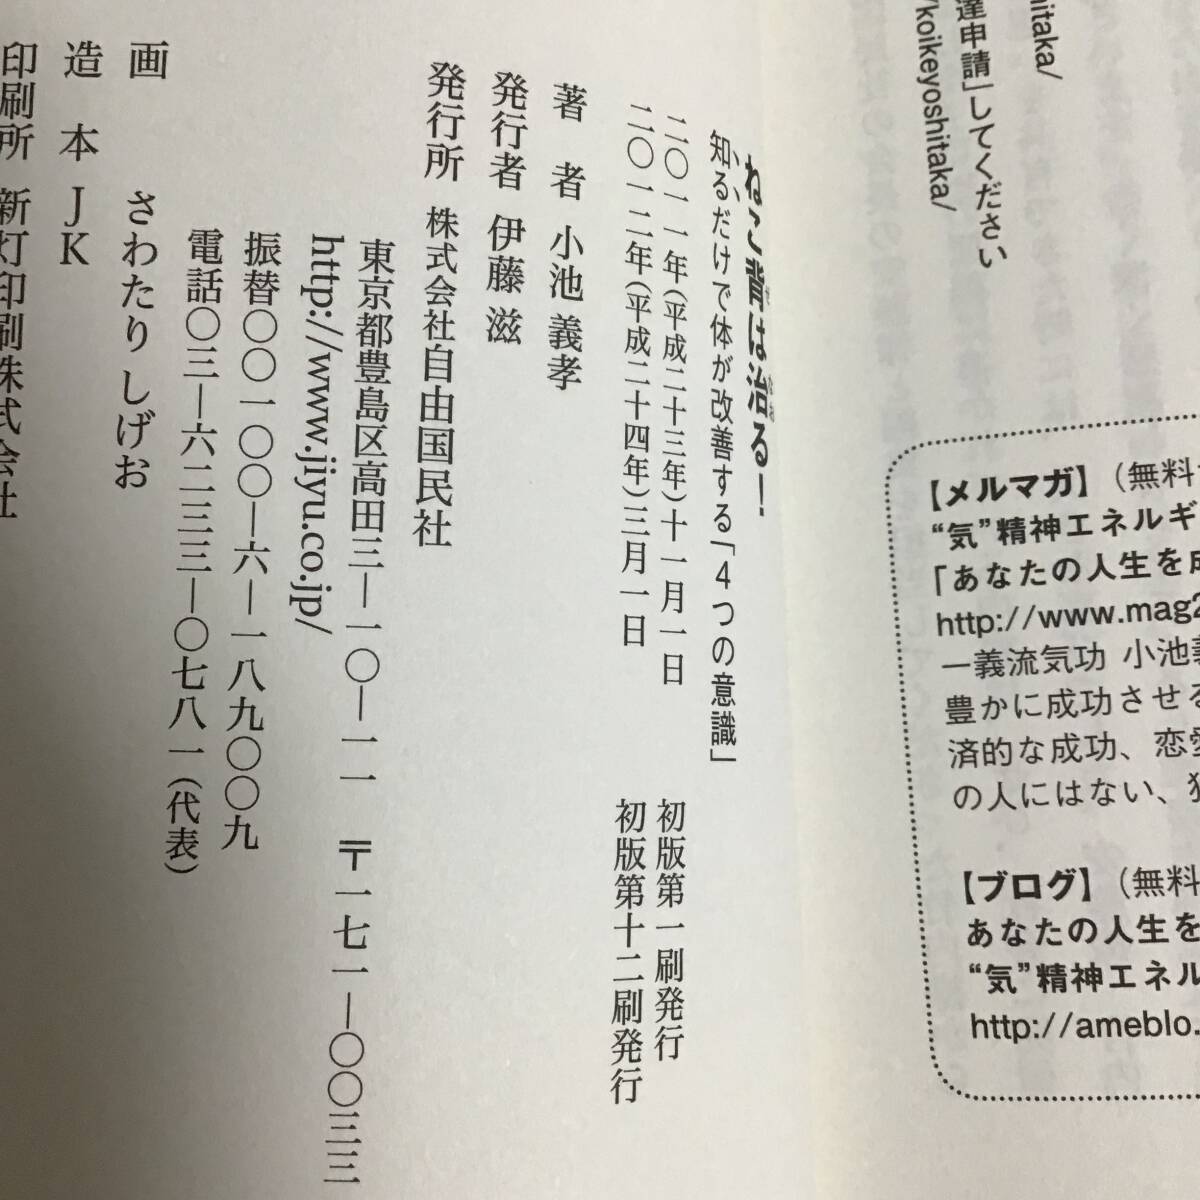 hitaka/
達申請」してください
/koikeyoshitaka/
【メルマガ】（無料
“気”精神エネルギ
「あなたの人生を成
http://www.mag2
一義流気功 小池義
豊かに成功させる
済的な成功、恋愛
の人にはない、独
【ブログ】（無料
あなたの人生を
“気”精神エネル
http://ameblo.
ねこ背は治る！
知るだけで体が改善する「4つの意識」
二〇一一年（平成二十三年）十一月一日 初版第一刷発行
二〇一二年（平成二十四年）三月一日 初版第十二刷発行
著 者 小池 義孝
発行者 伊藤 滋
発行所 株式会社自由国民社
東京都豊島区高田三―一〇―一一 〒一七一―〇〇三三
http://www.jiyu.co.jp/
振替〇〇一〇〇―六―一八九〇〇九
電話〇三―六二三三―〇七八一（代表）
画 さわたり しげお
造 本 JK
印刷所 新灯印刷株式会社